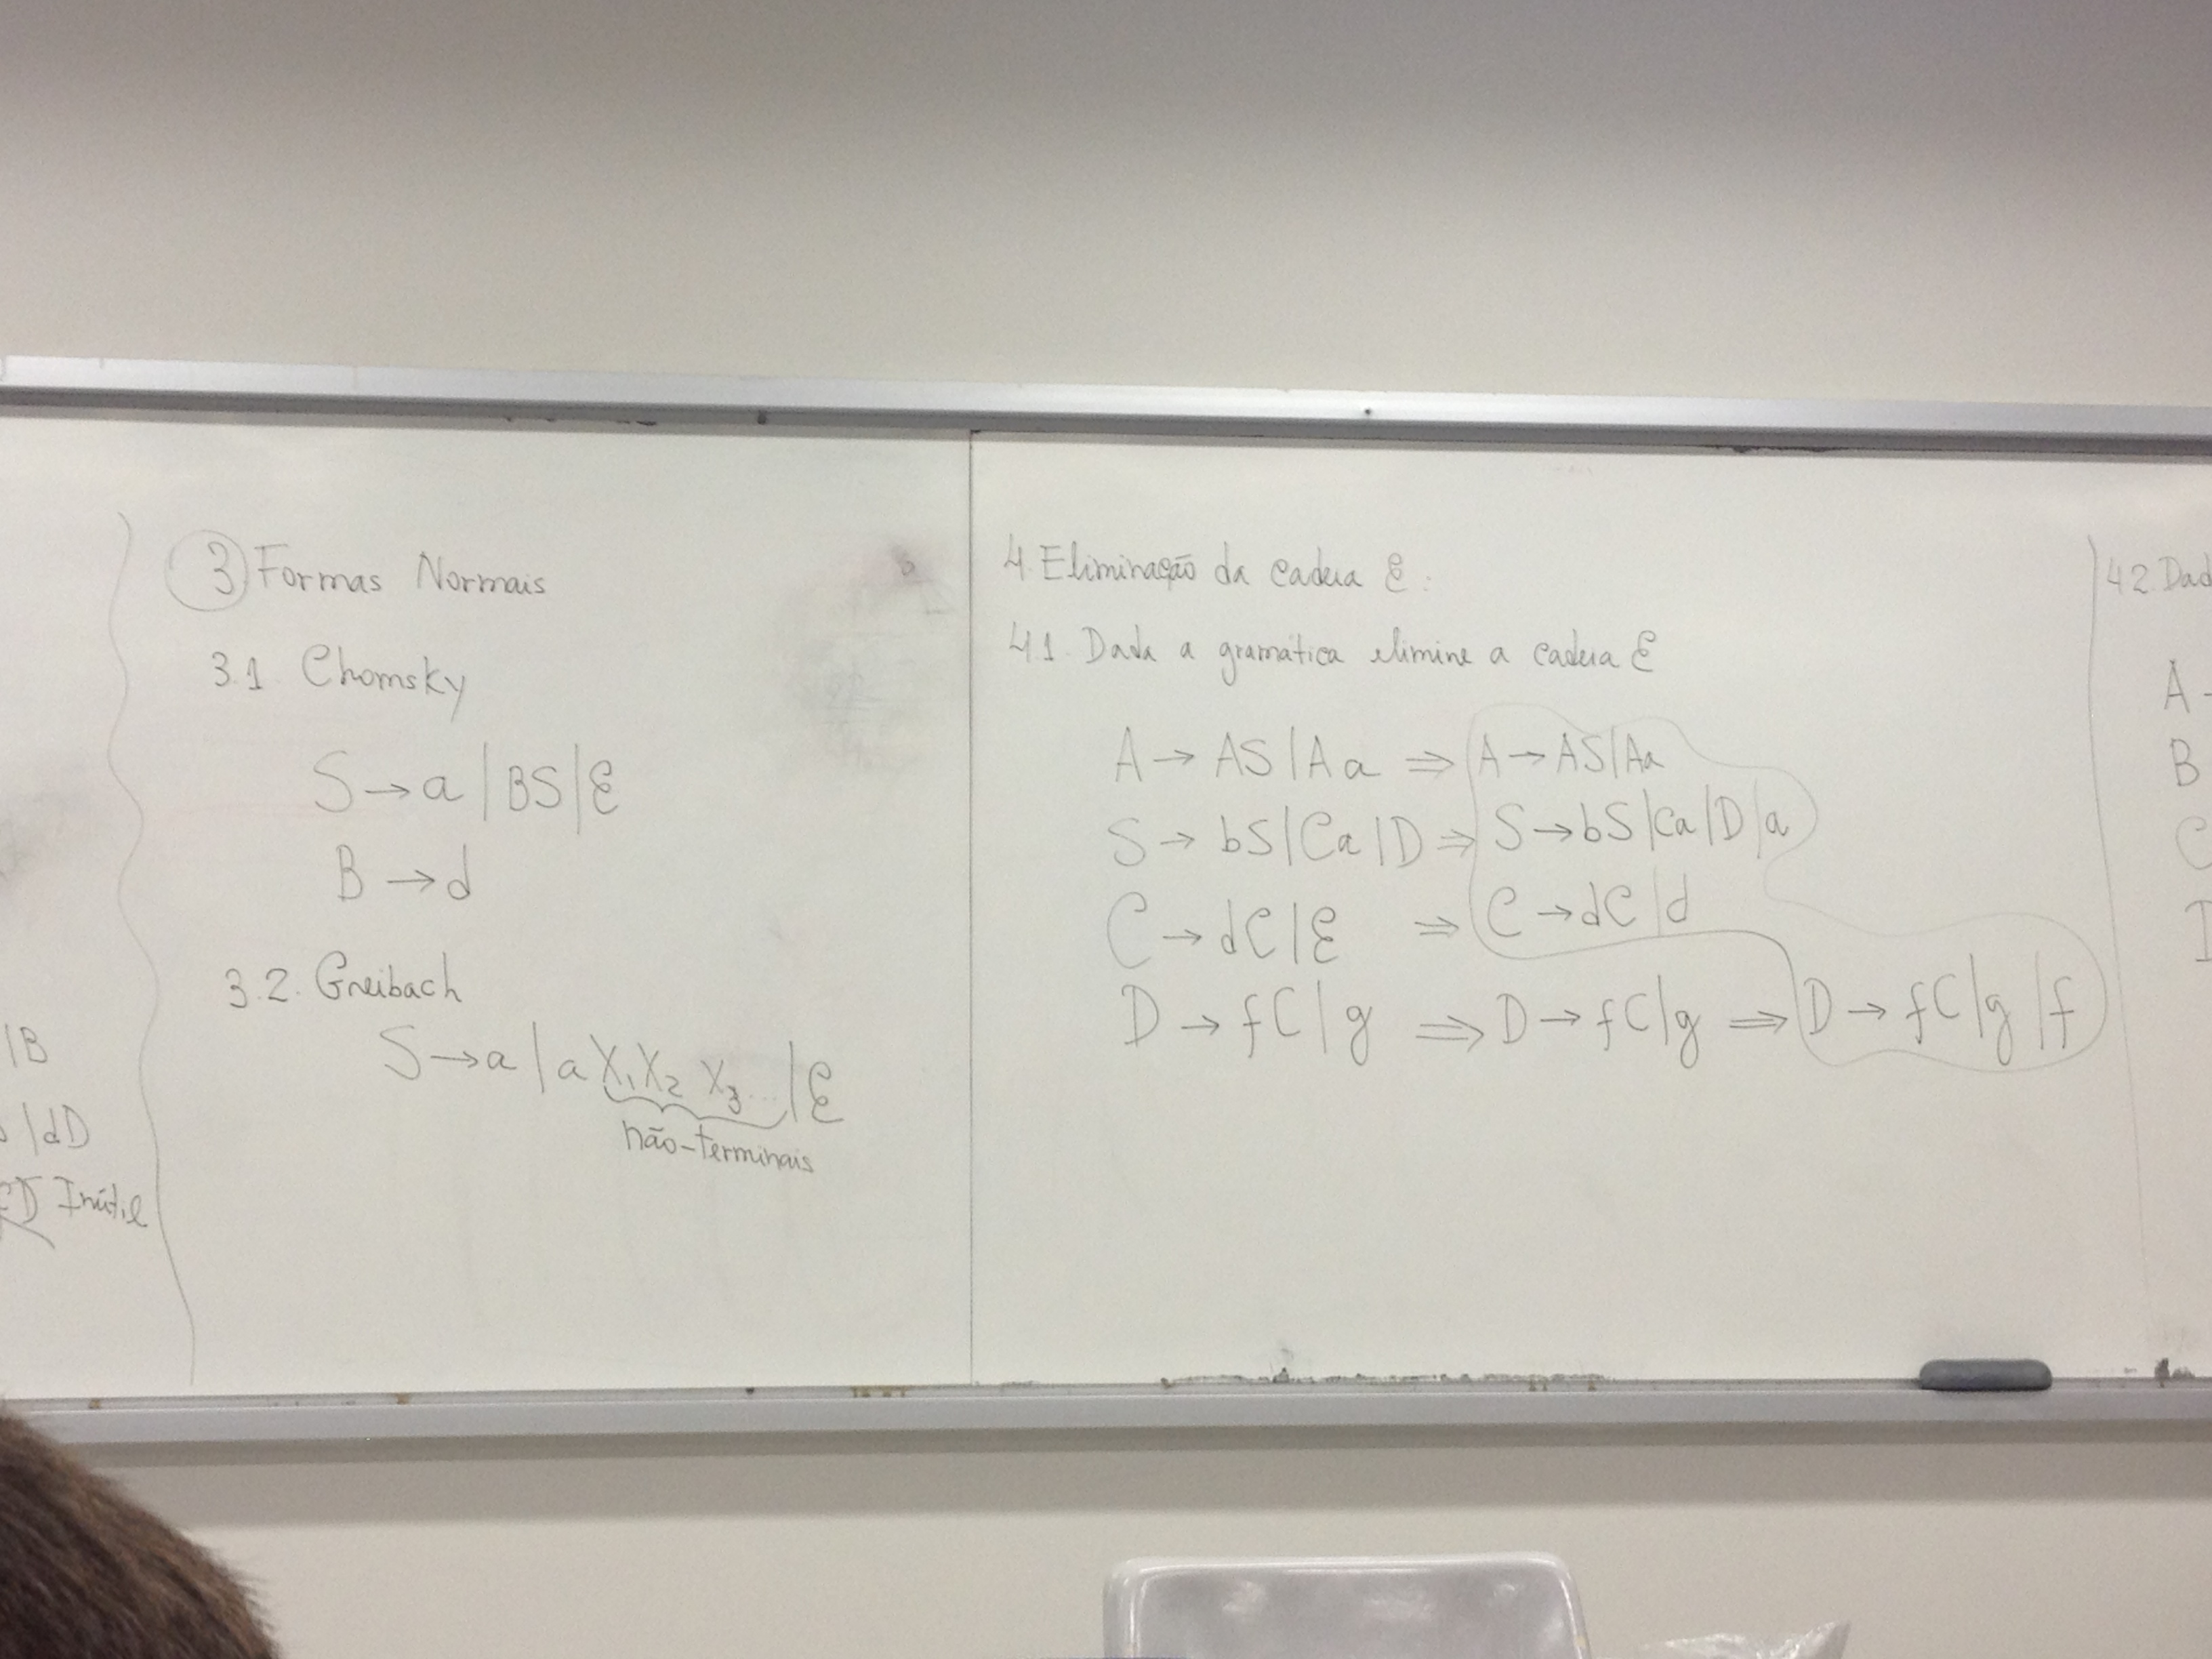 |B
|dD
Inútil
3 Formas Normais
3.1. Chomsky
S → a | BS | ε
B → d
3.2. Greibach
S → a | a X₁ X₂ X₃ ... | ε
não-terminais
4 Eliminação da cadeia ε:
4.1. Dada a gramática elimine a cadeia ε
A → AS | Aa ⇒ A → AS | Aa
S → bS | Ca | D ⇒ S → bS | Ca | D | a
C → dC | ε ⇒ C → dC | d
D → fC | g ⇒ D → fC | g ⇒ D → fC | g | f
4.2. Dad
A -
B
C